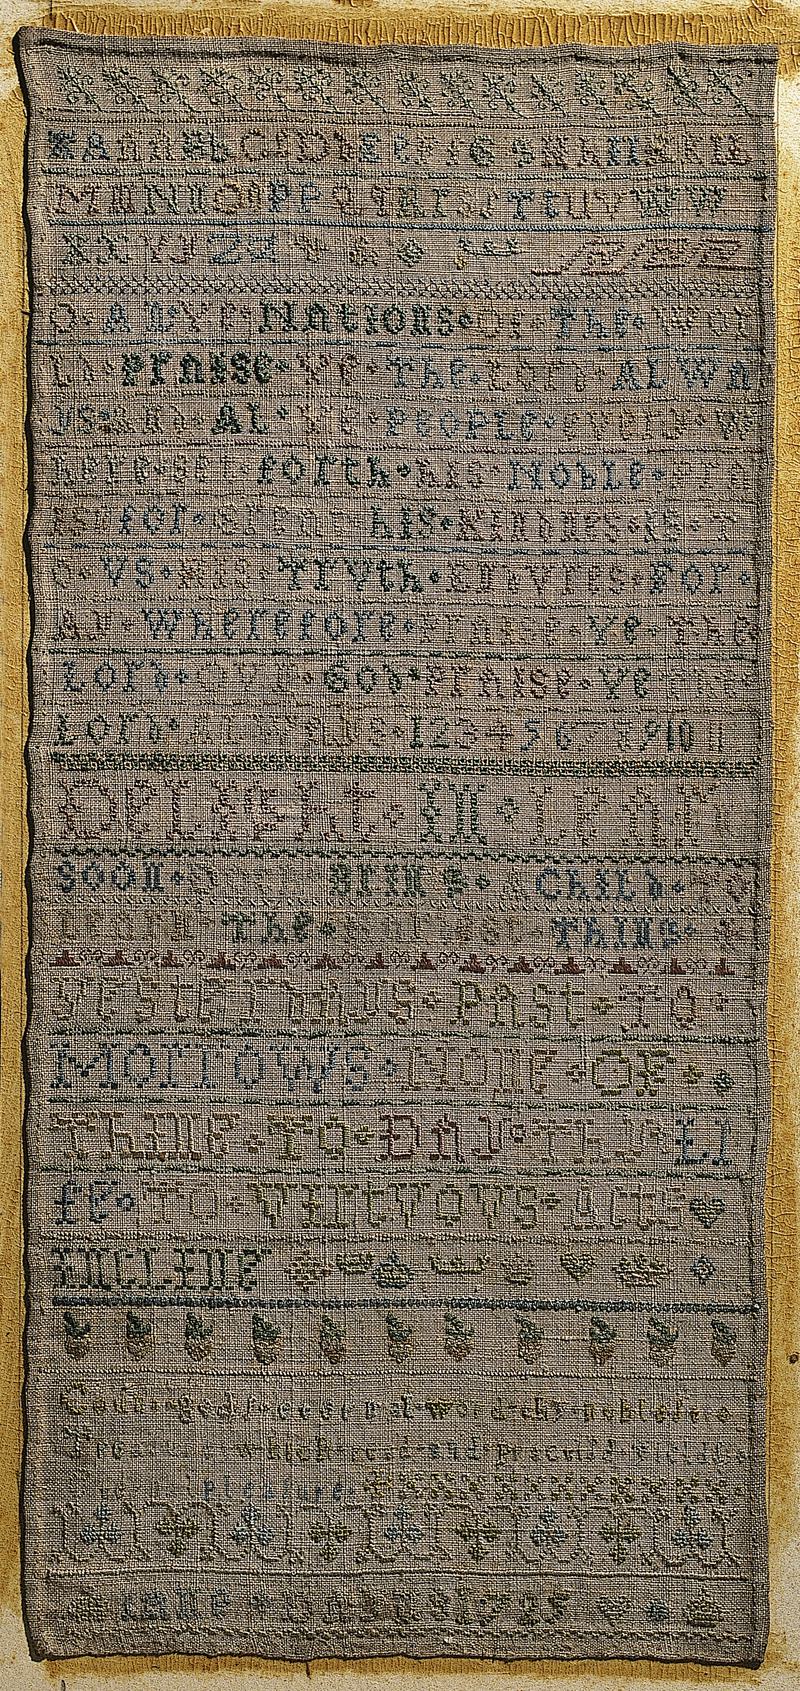 A A a B b C c D d E e F f G g H h I i K k L l
M m N n O o P p Q q R r S s T t U v W W
X x Y y Z z
O ALYE NAtIOns Of The Wor
ld PrAise Ye The Lord ALWA
ys And AL Ye PeoPLe every W
here set forth his NObLe PrA
ise for Great his KIndnes Is T
O VS HIs TrVth EndVres For
Ay Wherefore PrAise Ye The
Lord OVr God PrAise Ye The
Lord ALWAys 1 2 3 4 5 6 7 8 9 10 11
DeLight In LeArn
soon bring A ChILd TO
LeArn The Thing
YesterdAys PAst TO
MOrrOWs None OF
ThIne TO DAy Thy LI
fe TO VIrtVOVs Acts
IncLIne
which read and
pleasure
1725